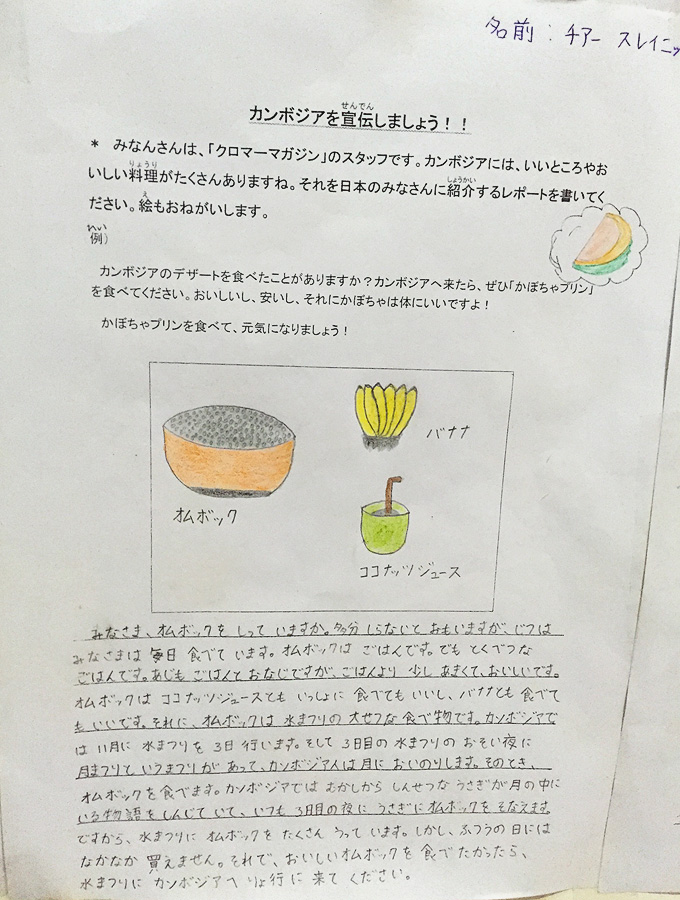 名前：チアー スレイニッ
せんでん
カンボジアを宣伝しましょう！！
＊ みなんさんは、「クロマーマガジン」のスタッフです。カンボジアには、いいところやお
りょうり しょうかい
いしい料理がたくさんありますね。それを日本のみなさんに紹介するレポートを書いてく
え
ださい。絵もおねがいします。
れい
例）
カンボジアのデザートを食べたことがありますか？カンボジアへ来たら、ぜひ「かぼちゃプリン」
を食べてください。おいしいし、安いし、それにかぼちゃは体にいいですよ！
かぼちゃプリンを食べて、元気になりましょう！
バナナ
オムボック
ココナッツジュース
みなさま、オムボックを しって いますか。多分 しらないと おもいますが、じつは
みなさまは 毎日 食べて います。オムボックは ごはんです。でも とくべつな
ごはんです。あじも ごはんと おなじですが、ごはんより 少し あまくて、おいしいです。
オムボックは ココナッツジュースとも いっしょに 食べても いいし、バナナとも 食べて
も いいです。それに、オムボックは 水まつりの 大せつな 食べ物です。カンボジアで
は 11月に 水まつりを 3日 行います。そして 3日目の 水まつりの おそい夜に
月まつりと いうまつりが あって、カンボジア人は 月に おいのりします。そのとき、
オムボックを 食べます。カンボジアでは むかしから しんせつな うさぎが 月の 中に
いる物語を しんじて いて、いつも 3日目の 夜に うさぎに オムボックを そなえます。
ですから、水まつりに オムボックを たくさん うって います。しかし、ふつうの 日には
なかなか 買えません。それで、おいしい オムボックを 食べ たかったら、
水まつりに カンボジアへ りょ行に 来て ください。